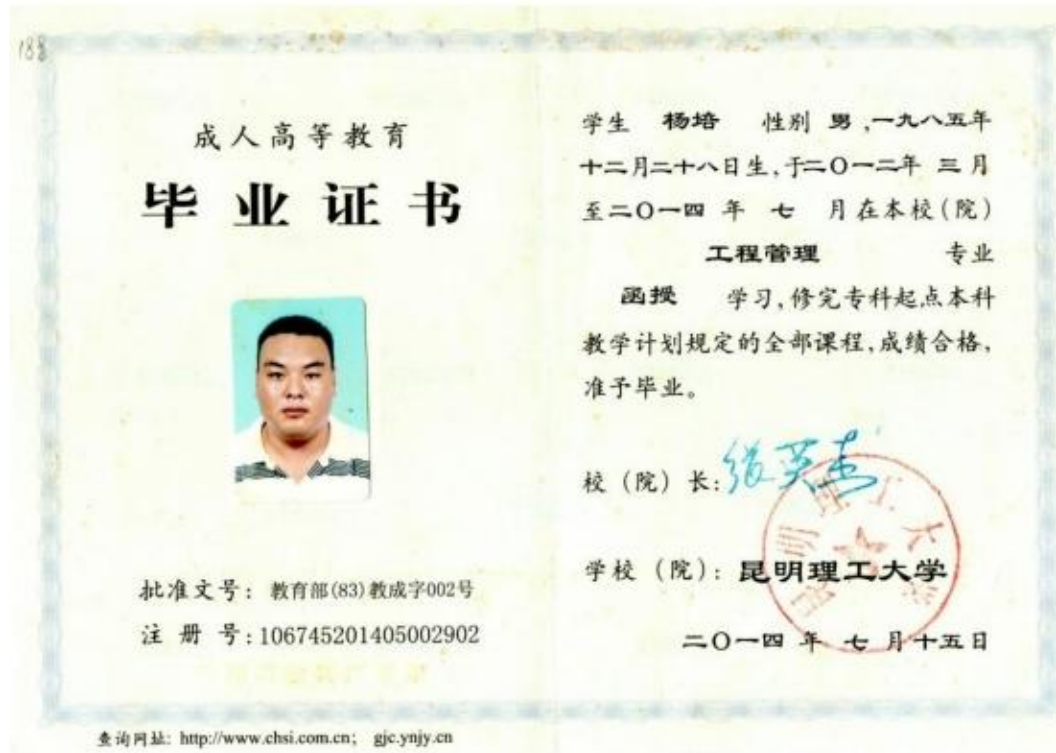 188
成人高等教育
毕业证书
批准文号: 教育部(83)教成字002号
注 册 号:106745201405002902
查询网址: http://www.chsi.com.cn; gjc.ynjy.cn
学生 杨培 性别 男,一九八五年
十二月二十八日生,于二〇一二年 三月
至二〇一四 年 七 月在本校(院)
工程管理 专业
函授 学习,修完专科起点本科
教学计划规定的全部课程,成绩合格,
准予毕业。
校(院)长:张英杰
学校(院):昆明理工大学
昆明理工大学
二〇一四 年 七 月十五日